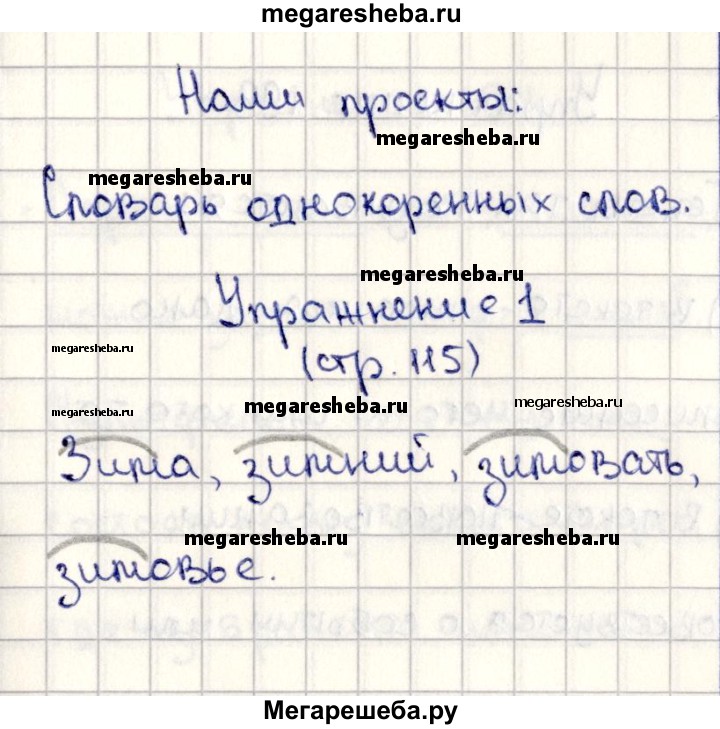 megaresheba.ru
Наши проекты:
megaresheba.ru
megaresheba.ru
Словарь однокоренных слов.
megaresheba.ru
Упражнение 1
megaresheba.ru
(стр. 115)
megaresheba.ru megaresheba.ru megaresheba.ru
Зима, зимний, зимовать,
megaresheba.ru megaresheba.ru
зимовье.
Мегарешеба.ру